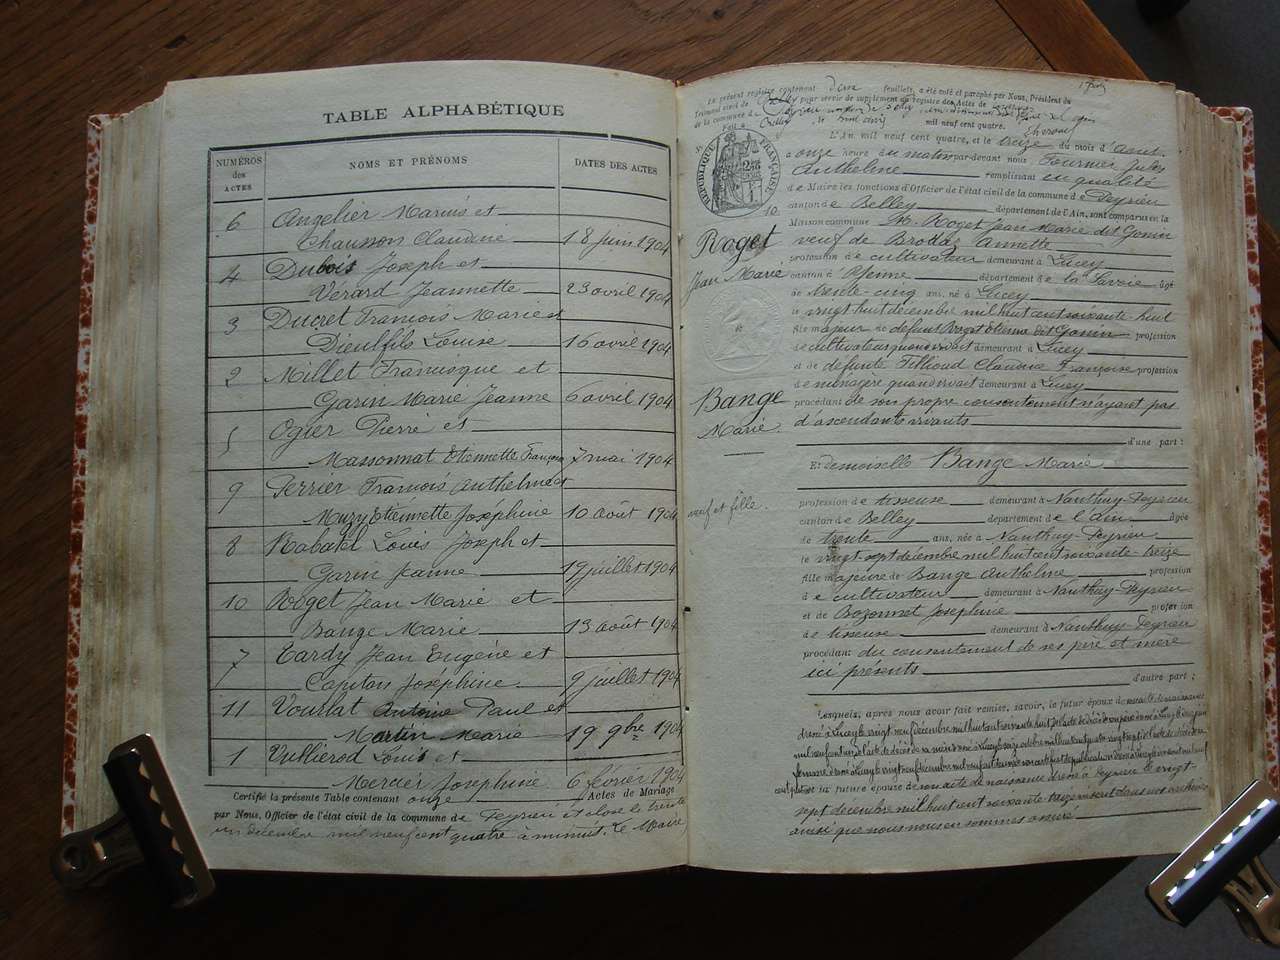 TABLE ALPHABÉTIQUE
NUMÉROS des ACTES NOMS ET PRÉNOMS DATES DES ACTES
6 Angelier Marius et
Chausson Claudine 18 juin 1904
4 Dubois Joseph et
Vérard Jeannette 23 avril 1904
3 Ducret Francois Marie et
Dieulfils Louise 16 avril 1904
2 Millet Francisque et
Garin Marie Jeanne 6 avril 1904
5 Ogier Pierre et
Massonnat Etiennette Françoise 7 mai 1904
9 Perrier Francois Anthelme et
Muzy Etiennette Joséphine 10 août 1904
8 Rabatel Louis Joseph et
Garin Jeanne 19 juillet 1904
10 Roget Jean Marie et
Bange Marie 13 août 1904
7 Tardy Jean Eugéne et
Capitan Joséphine 9 juillet 1904
11 Vourlat Antoine Paul et
Martin Marie 19 9bre 1904
1 Vuillierod Louis et
Mercier Joséphine 6 février 1904
Certifié la présente Table contenant onze Actes de Mariage
par Nous, Officier de l'état civil de la commune de Peyrieu et clos le trente
un décembre mil neuf cent quatre à minuit. Le Maire
Le présent registre contenant feuillets, a été coté et paraphé par Nous, Président du
Tribunal civil de Belley pour servir de supplément au registre des Actes de
de la commune de
Fait à Belley, le mil neuf cent quatre.
L'An mil neuf cent quatre, et le treize du mois d'août
RÉPUBLIQUE FRANÇAISE
à onze heure du matin par-devant nous Fournier Jules
Anthelme remplissant en qualité
de Maire les fonctions d'Officier de l'état civil de la commune de Peyrieu
canton de Belley département de l'Ain, sont comparus en la
N° 10
Maison commune M. Roget Jean Marie dit Gonin
Roget
Jean Marie
veuf de Annette
profession de cultivateur demeurant à Lucey
canton d'Yenne département de la Savoie âgé
de trente-cinq ans, né à Lucey
le vingt huit décembre mil huit cent soixante huit
fils majeur de défunt Roget Etienne dit Gonin profession
de cultivateur quand vivait demeurant à Lucey
et de défunte Fillioud Claudine Françoise profession
de ménagère quand vivait demeurant à Lucey
Bange
Marie
procédant de son propre consentement n'ayant pas
d'ascendants vivants
d'une part :
Et demoiselle Bange Marie
veuf et fille.
profession de tisseuse demeurant à Nanthuy-Peyrieu
canton de Belley département de l'ain âgée
de trente ans, née à Nanthuy-Peyrieu
le vingt sept décembre mil huit cent soixante treize
fille majeure de Bange Anthelme profession
de cultivateur demeurant à Nanthuy-Peyrieu
et de Bozonnet Joséphine profession
de tisseuse demeurant à Nanthuy-Peyrieu
procédant du consentement de ses pére et mére
ici présents
d'autre part ;
Lesquels, après nous avoir fait remise, savoir, le futur époux de
et la future épouse de son acte de naissance dressé à Peyrieu le vingt-
sept décembre mil huit cent soixante treize inscrit dans nos archives
ainsi que nous nous en sommes assuré